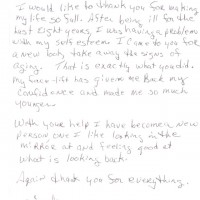 I would like to thank you for making
my life so full. After being ill for the
last eight years, I was having a problem
with my self esteem I came to you for
a new body take away the signs of
aging. That is exactly what you did.
my face-lift has given me back my
confidence and made me so much
younger.
With your help I have become a new
person one I like looking in the
mirror at and feeling good at
what is looking back.
Again thank you for everything.